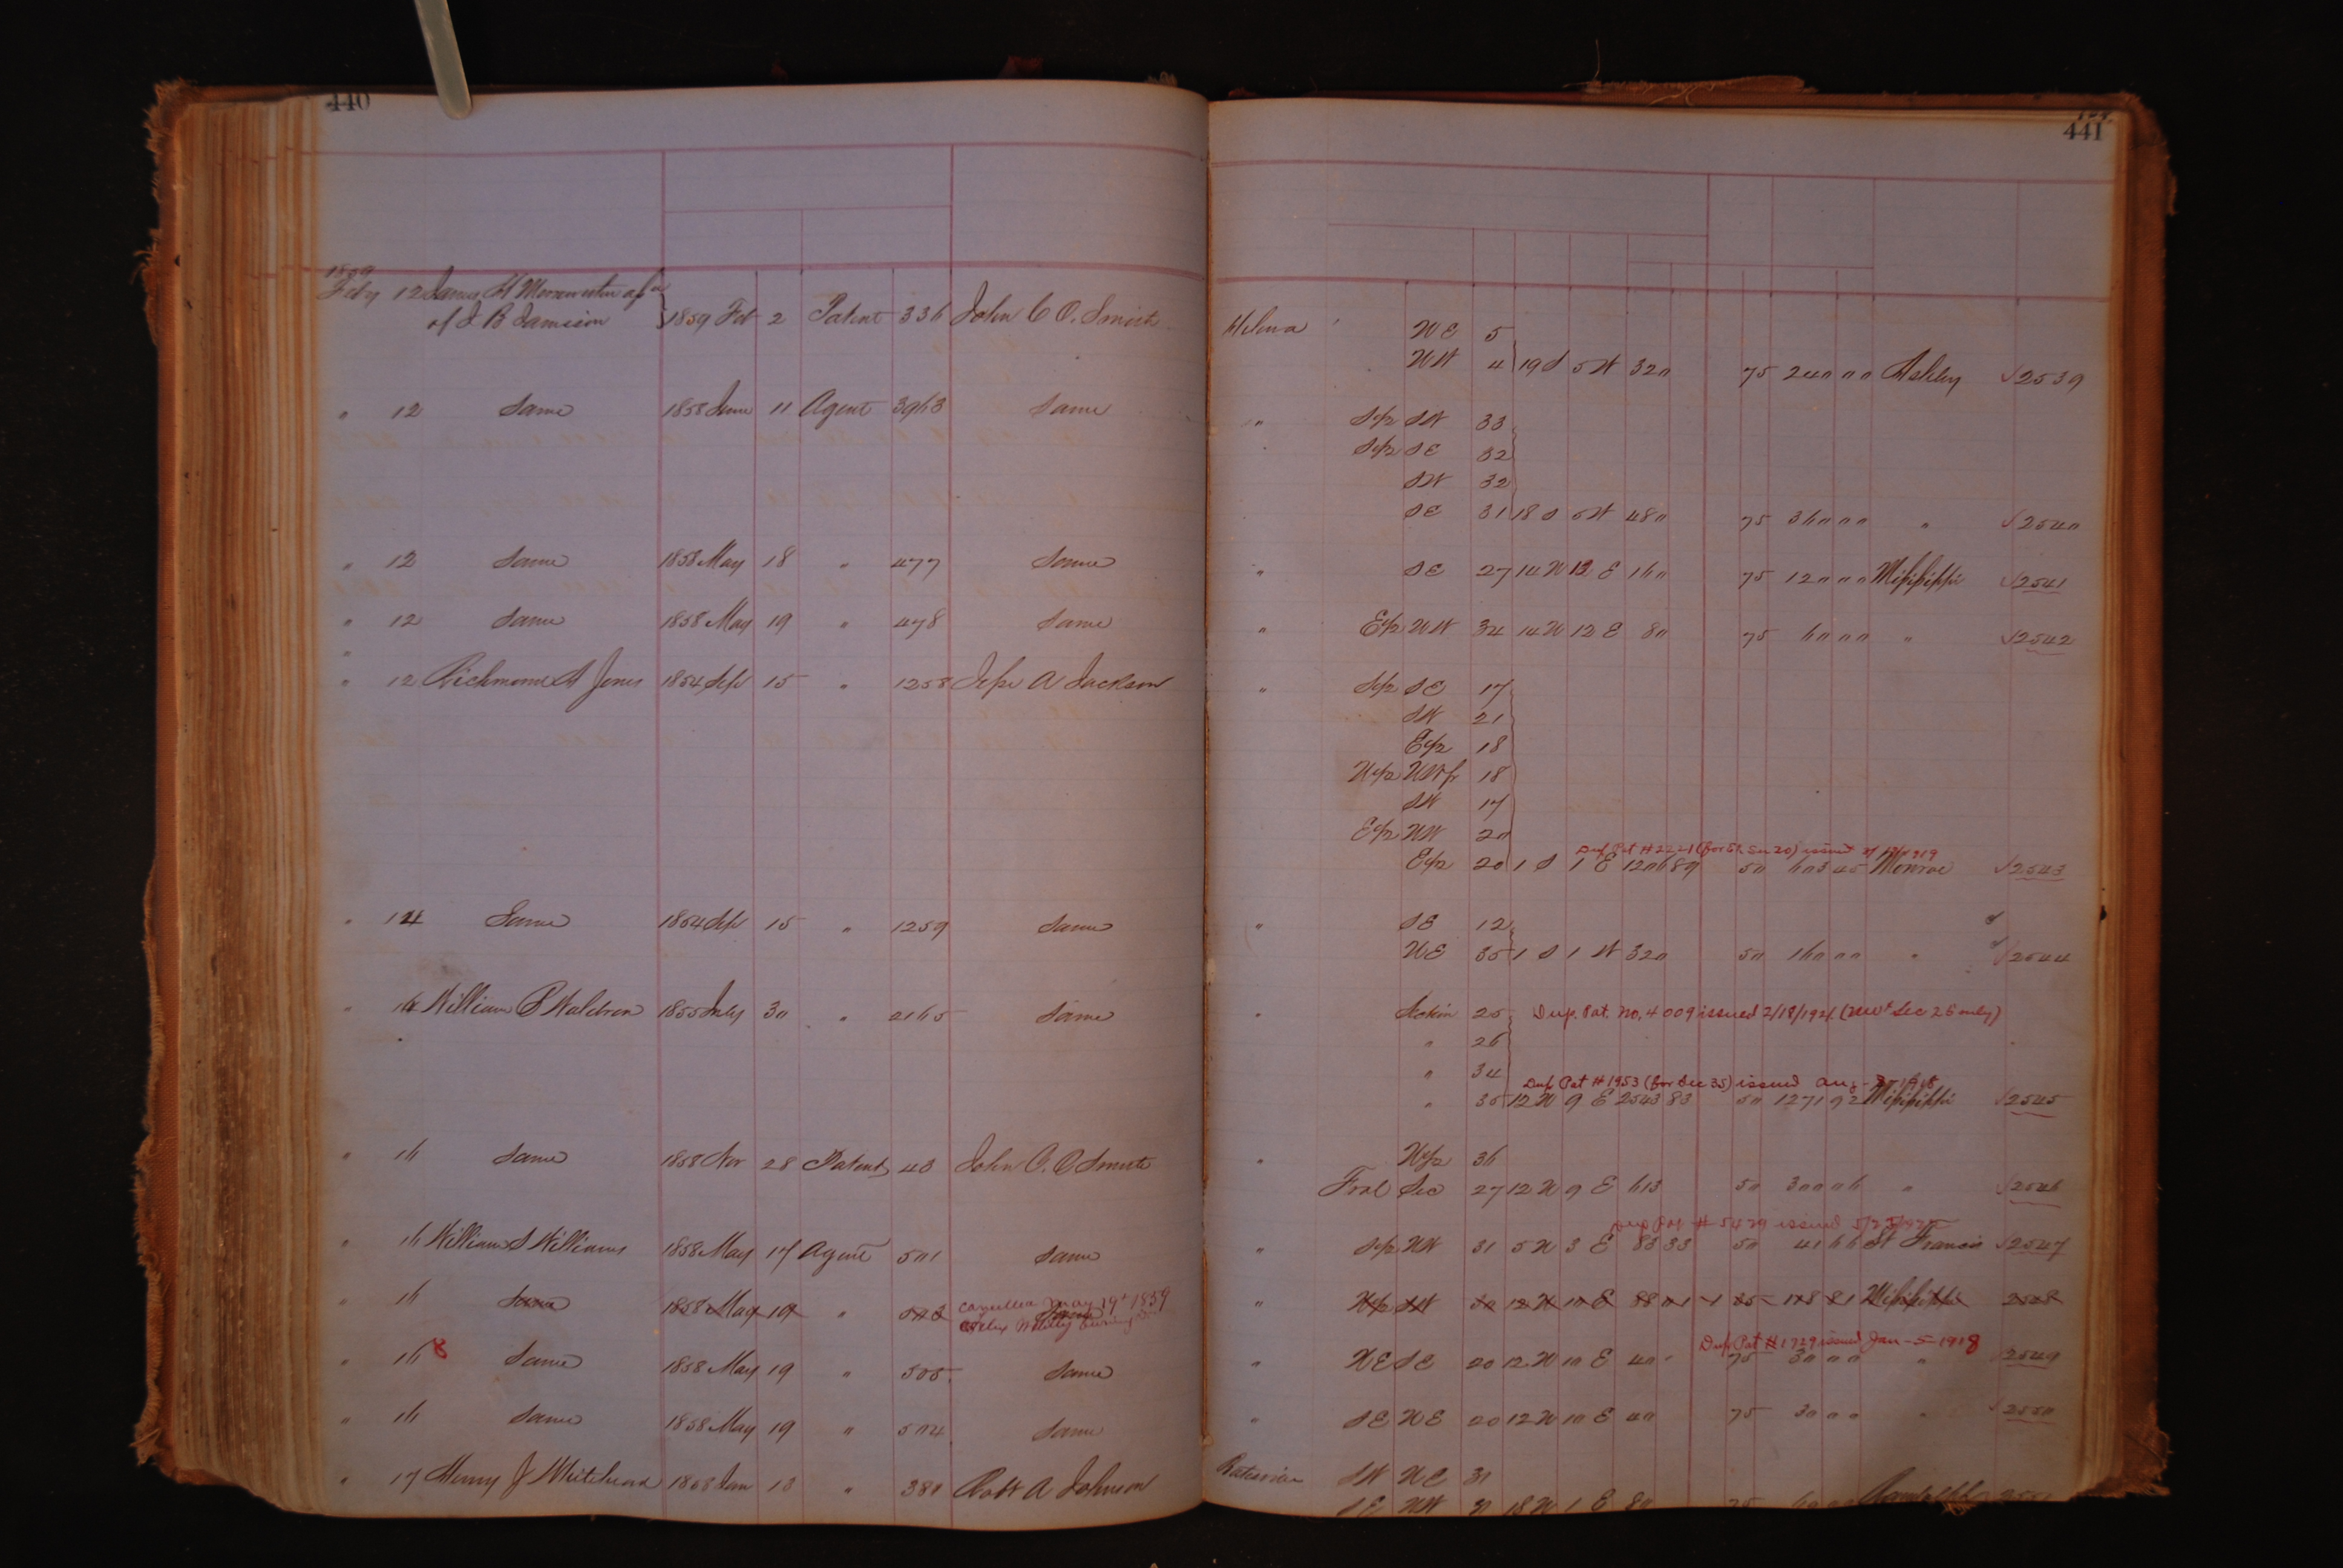 440
1859
Feby 12 James H Merriweather asse
of J B Jamison 1859 Feb 2 Patent 336 John C O. Smith
" 12 Same 1858 June 11 Agent 3963 Same
" 12 Same 1858 May 18 " 477 Same
" 12 Same 1858 May 19 " 478 Same
"
" 12 Richmond A Jones 1854 Sep 15 " 1258 Jesse A Jackson
" 14 Same 1854 Sep 15 " 1259 Same
" 14 William P Waldron 1855 July 30 " 2165 Same
" 16 Same 1858 Nov 28 Patent 40 John C. O Smith
" 16 William S Williams 1858 May 17 Agent 501 Same
" 16 Same 1858 May 19 " 503 Same
cancelled May 19th 1859
" 16 8 Same 1858 May 19 " 505 Same
" 16 Same 1858 May 19 " 504 Same
" 17 Henry J Whitehead 1858 Jan 13 " 380 Robt A Johnson
441
Helena NE 5
NW 4 19 S 5 W 320 75 240 00 Ashley 2539
" S1/2 SW 33
S1/2 SE 32
SW 32
SE 31 18 S 5 W 480 75 360 00 " 2540
" SE 27 14 N 12 E 160 75 120 00 Mississippi 2541
" E1/2 NW 34 14 N 12 E 80 75 60 00 " 2542
" S1/2 SE 17
SW 21
E1/2 18
N1/2 NWfr 18
SW 17
E1/2 NW 20
Dup Pat # 2221 (for E1/2 Sec 20) issued 1919
E1/2 20 1 S 1 E 1206 89 50 603 45 Monroe 2543
" SE 12
NE 35 1 S 1 W 320 50 160 00 " 2544
" Section 25 Dup. Pat. No. 4009 issued 2/18/1921 (NW4 Sec 25 only)
" 26
" 34
Dup Pat # 1953 (for Sec 35) issued Aug - 1918
" 35 12 N 9 E 2543 83 50 1271 92 Mississippi 2545
" W1/2 36
Fral Sec 27 12 N 9 E 613 50 300 06 " 2546
Dup Pat # 5429 issued
" S1/2 NW 31 5 N 3 E 83 33 50 41 66 St Francis 2547
" W1/2 SW 30 12 N 10 E 88 01 1 35 118 81 Mississippi 2548
Dup Pat # 1729 issued Jan-5-1918
" NE SE 20 12 N 10 E 40 " 75 30 00 " 2549
" SE NE 20 12 N 10 E 40 75 30 00 " 2550
Batesville SW NE 31
SE NW 31 18 N 1 E 80 75 60 00 Randolph 2551